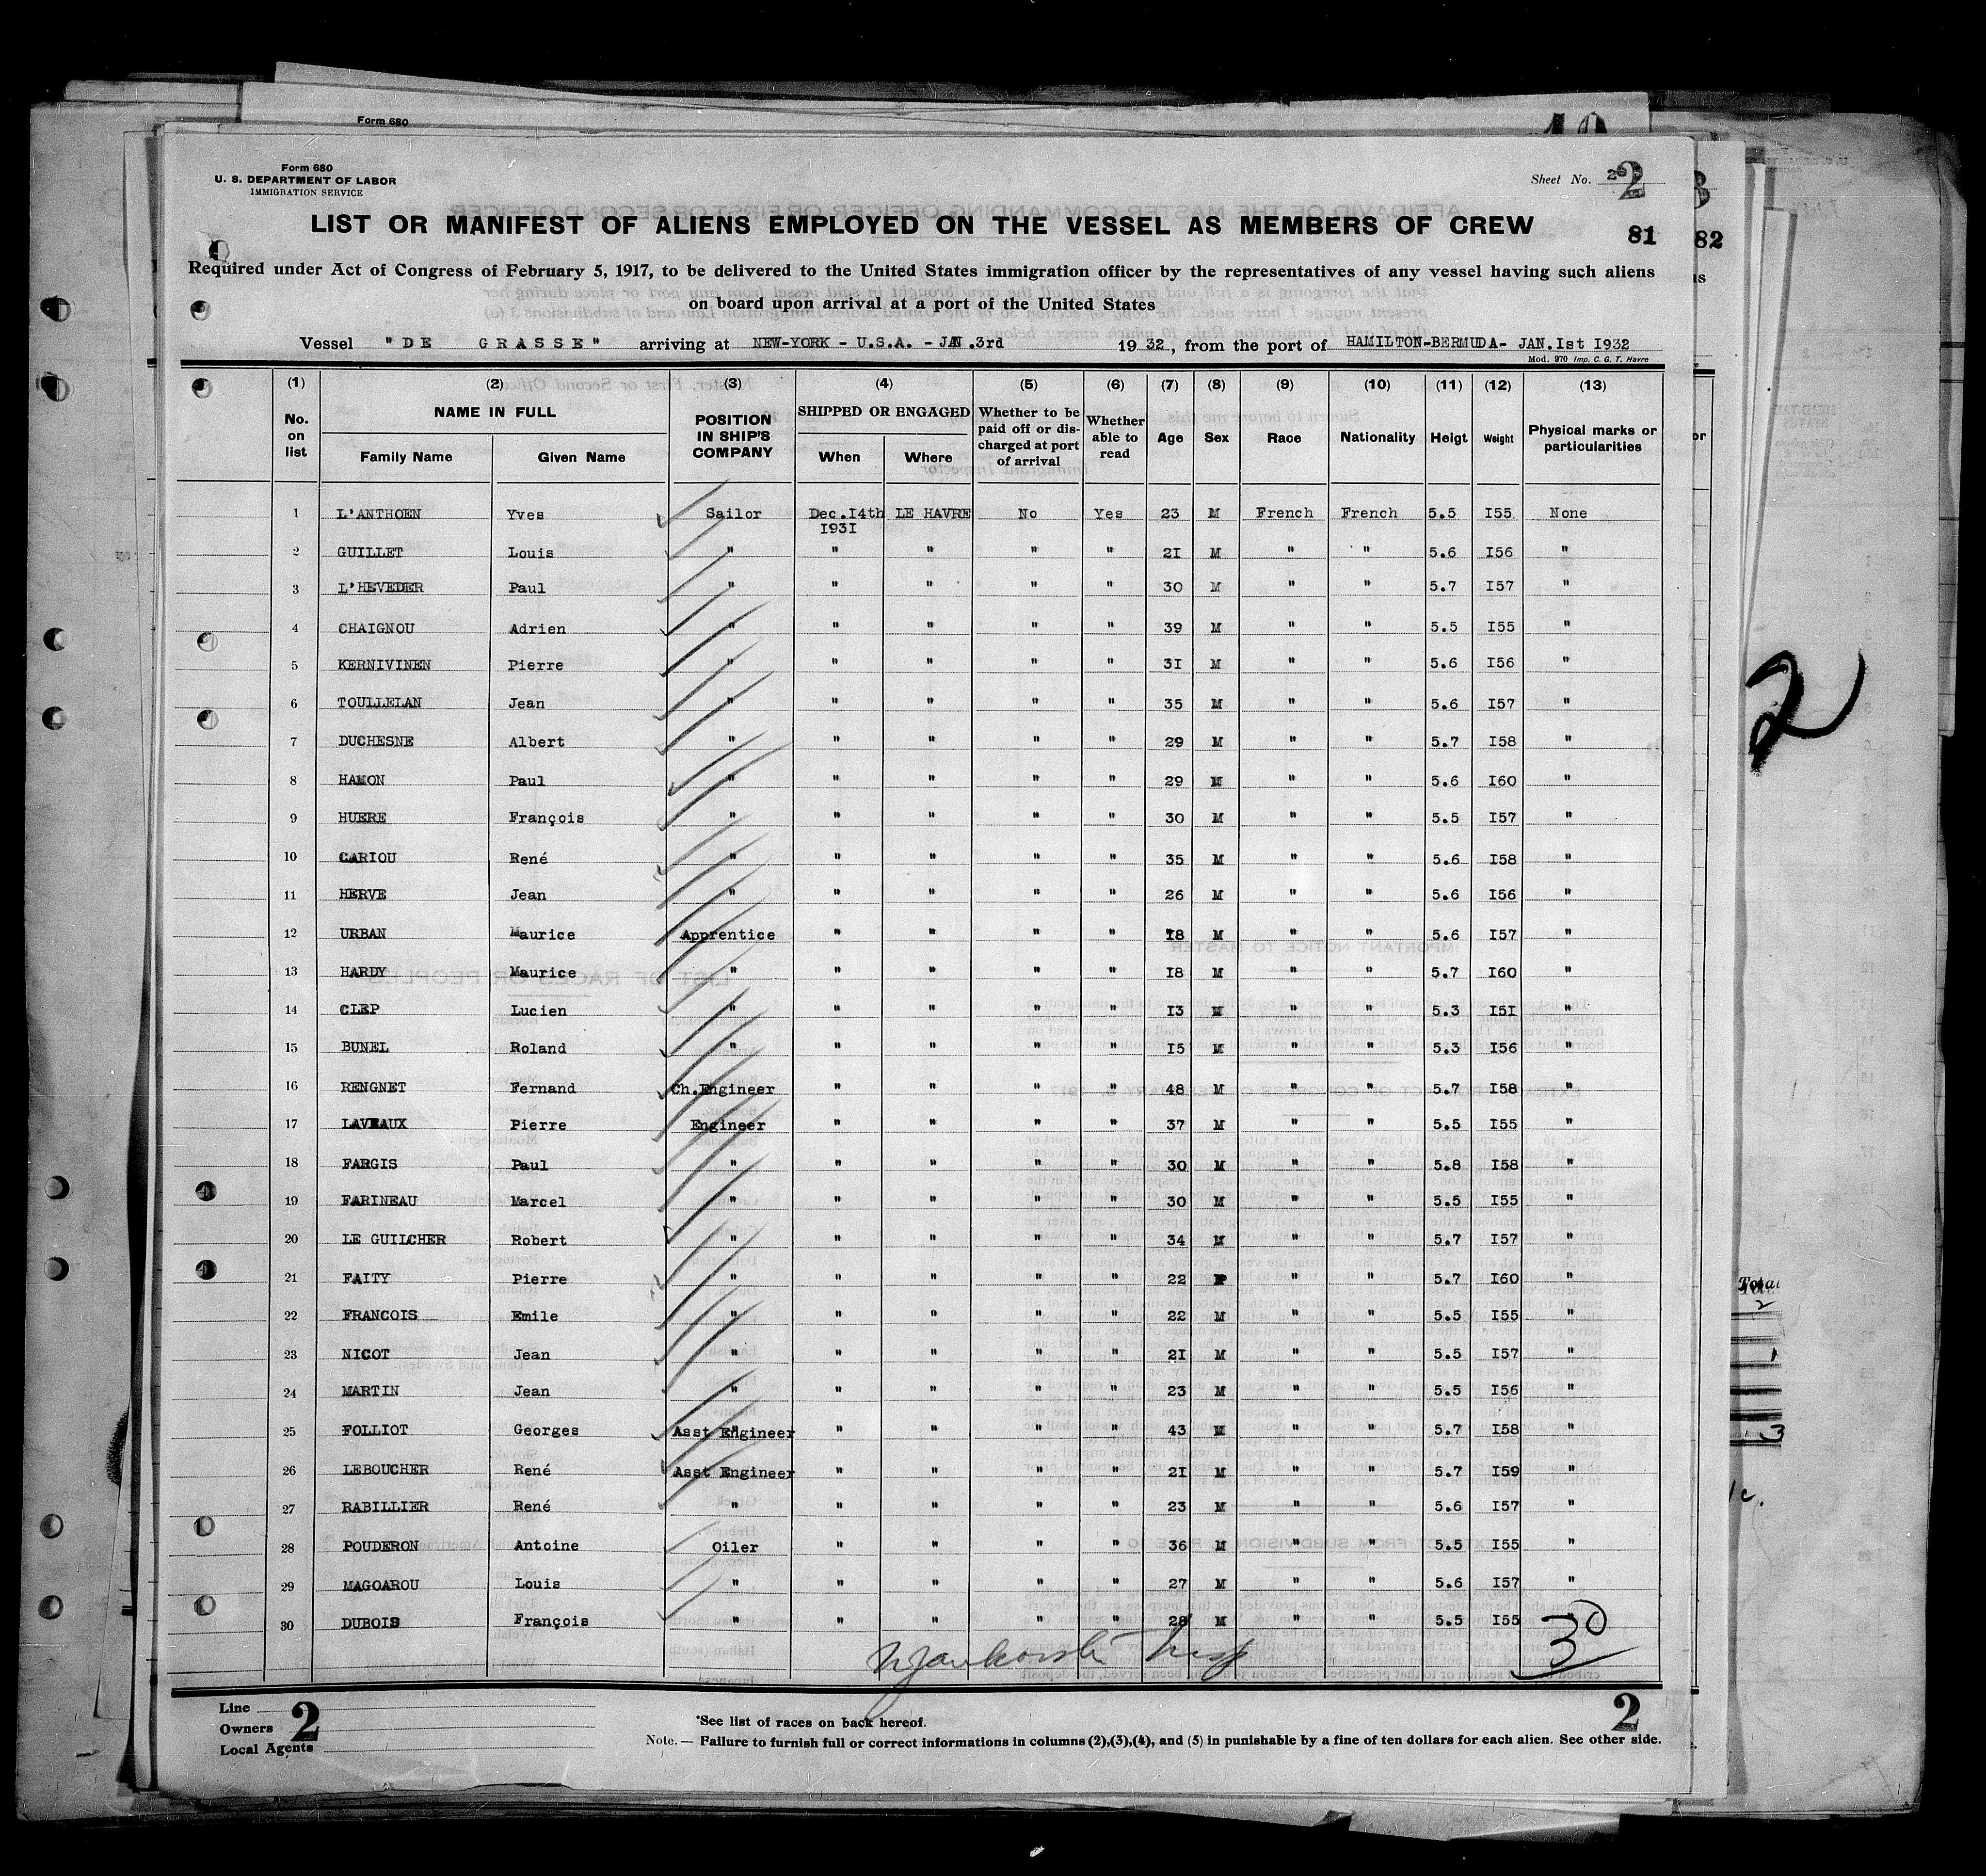 Form 680
Form 680
U. S. DEPARTMENT OF LABOR
IMMIGRATION SERVICE
Sheet No. 2
LIST OR MANIFEST OF ALIENS EMPLOYED ON THE VESSEL AS MEMBERS OF CREW
81
82
Required under Act of Congress of February 5, 1917, to be delivered to the United States immigration officer by the representatives of any vessel having such aliens
on board upon arrival at a port of the United States
Vessel "DE GRASSE" arriving at NEW-YORK - U.S.A. - JAN.3rd 1932, from the port of HAMILTON-BERMUDA- JAN.Ist I932
Mod. 970 Imp. C. G. T. Havre
(1) (2) (3) (4) (5) (6) (7) (8) (9) (10) (11) (12) (13)
No. on list NAME IN FULL POSITION IN SHIP'S COMPANY SHIPPED OR ENGAGED Whether to be paid off or discharged at port of arrival Whether able to read Age Sex Race Nationality Heigt Weight Physical marks or particularities
Family Name Given Name When Where
1 L'ANTHOEN Yves Sailor Dec.I4th I93I LE HAVRE No Yes 23 M French French 5.5 I55 None
2 GUILLET Louis " " " " " 2I M " " 5.6 I56 "
3 L'HEVEDER Paul " " " " " 30 M " " 5.7 I57 "
4 CHAIGNOU Adrien " " " " " 39 M " " 5.5 I55 "
5 KERNIVINEN Pierre " " " " " 3I M " " 5.6 I56 "
6 TOULLELAN Jean " " " " " 35 M " " 5.6 I57 "
7 DUCHESNE Albert " " " " " 29 M " " 5.7 I58 "
8 HAMON Paul " " " " " 29 M " " 5.6 I60 "
9 HUERE François " " " " " 30 M " " 5.5 I57 "
10 CARIOU René " " " " " 35 M " " 5.6 I58 "
11 HERVE Jean " " " " " 26 M " " 5.6 I56 "
12 URBAN Maurice Apprentice " " " " I8 M " " 5.6 I57 "
13 HARDY Maurice " " " " " I8 M " " 5.7 I60 "
14 CLEP Lucien " " " " " I3 M " " 5.3 I5I "
15 BUNEL Roland " " " " " I5 M " " 5.3 I56 "
16 RENGNET Fernand Ch.Engineer " " " " 48 M " " 5.7 I58 "
17 LAVEAUX Pierre Engineer " " " " 37 M " " 5.5 I55 "
18 FARGIS Paul " " " " " 30 M " " 5.8 I58 "
19 FARINEAU Marcel " " " " " 30 M " " 5.5 I55 "
20 LE GUILCHER Robert " " " " " 34 M " " 5.7 I57 "
21 FAITY Pierre " " " " " 22 " " 5.7 I60 "
22 FRANCOIS Emile " " " " " 22 M " " 5.5 I55 "
23 NICOT Jean " " " " " 2I M " " 5.5 I57 "
24 MARTIN Jean " " " " " 23 M " " 5.5 I56 "
25 FOLLIOT Georges Asst Engineer " " " " 43 M " " 5.7 I58 "
26 LEBOUCHER René Asst Engineer " " " " 2I M " " 5.7 I59 "
27 RABILLIER René " " " " " 23 M " " 5.6 I57 "
28 POUDERON Antoine Oiler " " " " 36 M " " 5.5 I55 "
29 MAGOAROU Louis " " " " " 27 M " " 5.6 I57 "
30 DUBOIS François " " " " " 28 M " " 5.5 I55 "
30
Line
Owners
Local Agents
2
2
*See list of races on back hereof.
Note. — Failure to furnish full or correct informations in columns (2),(3),(4), and (5) in punishable by a fine of ten dollars for each alien. See other side.
2
Total